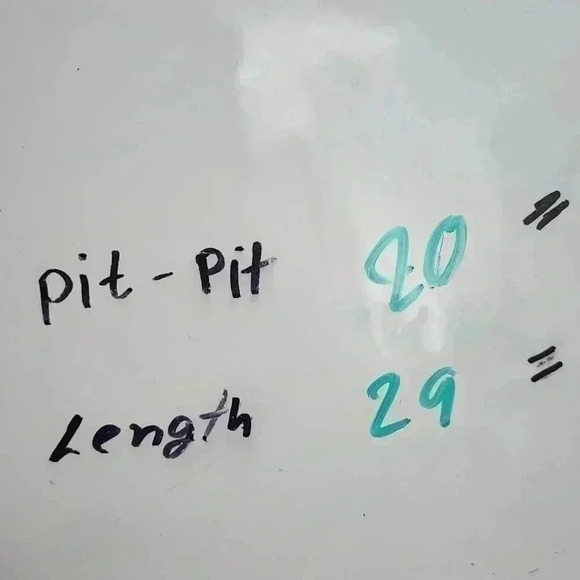 pit - pit 20 "
Length 29 "